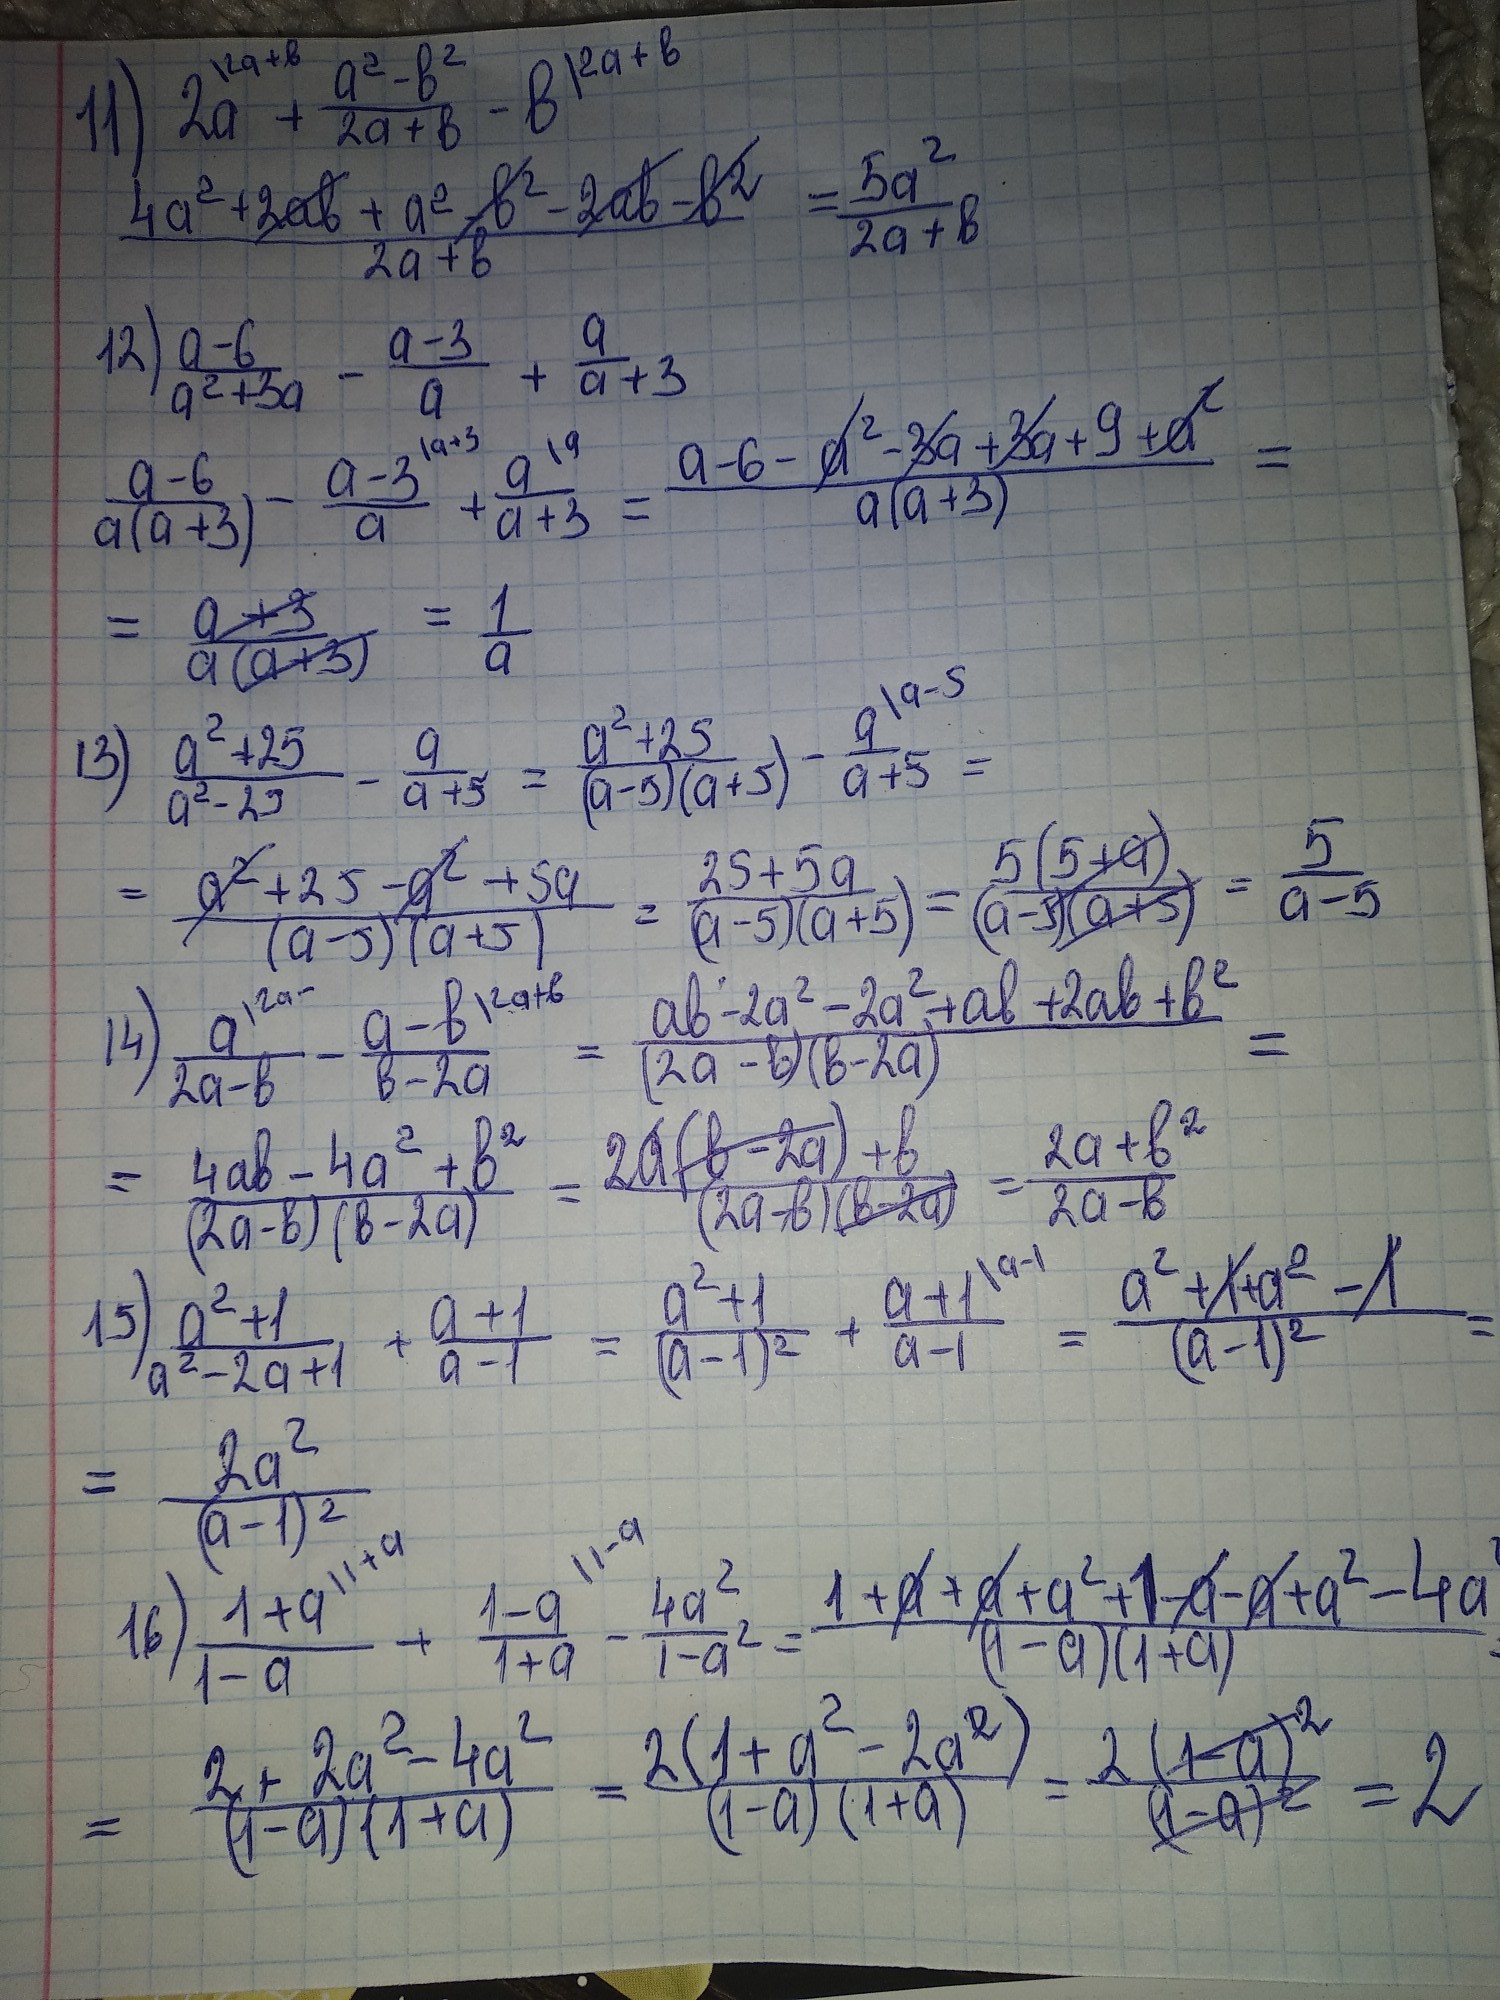 11) 2a^\2a+b + (a²-b²)/(2a+b) - b^\2a+b
(4a²+2ab+a²-b²-2ab-b²)/(2a+b) = 5a²/(2a+b)
12) (a-6)/(a²+3a) - (a-3)/a + a/(a+3)
(a-6)/(a(a+3)) - (a-3)^\a+3/a + a^\a/(a+3) = (a-6-a²-3a+3a+9+a²)/(a(a+3)) =
= (a+3)/(a(a+3)) = 1/a
13) (a²+25)/(a²-25) - a/(a+5) = (a²+25)/((a-5)(a+5)) - a^\a-5/(a+5) =
= (a²+25-a²+5a)/((a-5)(a+5)) = (25+5a)/((a-5)(a+5)) = 5(5+a)/((a-5)(a+5)) = 5/(a-5)
14) a^\2a-/(2a-b) - (a-b)^\2a+b/(b-2a) = (ab-2a²-2a²+ab+2ab+b²)/((2a-b)(b-2a)) =
= (4ab-4a²+b²)/((2a-b)(b-2a)) = (2a(b-2a)+b)/((2a-b)(b-2a)) = (2a+b²)/(2a-b)
15) (a²+1)/(a²-2a+1) + (a+1)/(a-1) = (a²+1)/(a-1)² + (a+1)^\a-1/(a-1) = (a²+1+a²-1)/(a-1)² =
= 2a²/(a-1)²
16) (1+a)^\1+a/(1-a) + (1-a)^\1-a/(1+a) - 4a²/(1-a²) = (1+a+a+a²+1-a-a+a²-4a²)/((1-a)(1+a)) =
= (2+2a²-4a²)/((1-a)(1+a)) = 2(1+a²-2a²)/((1-a)(1+a)) = 2(1-a)²/(1-a)² = 2